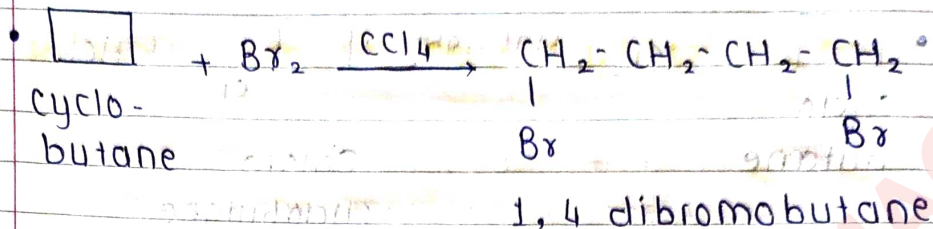 + Br₂ CCl4 → CH₂ - CH₂ - CH₂ - CH₂
Br Br
cyclo-
butane
1, 4 dibromobutane